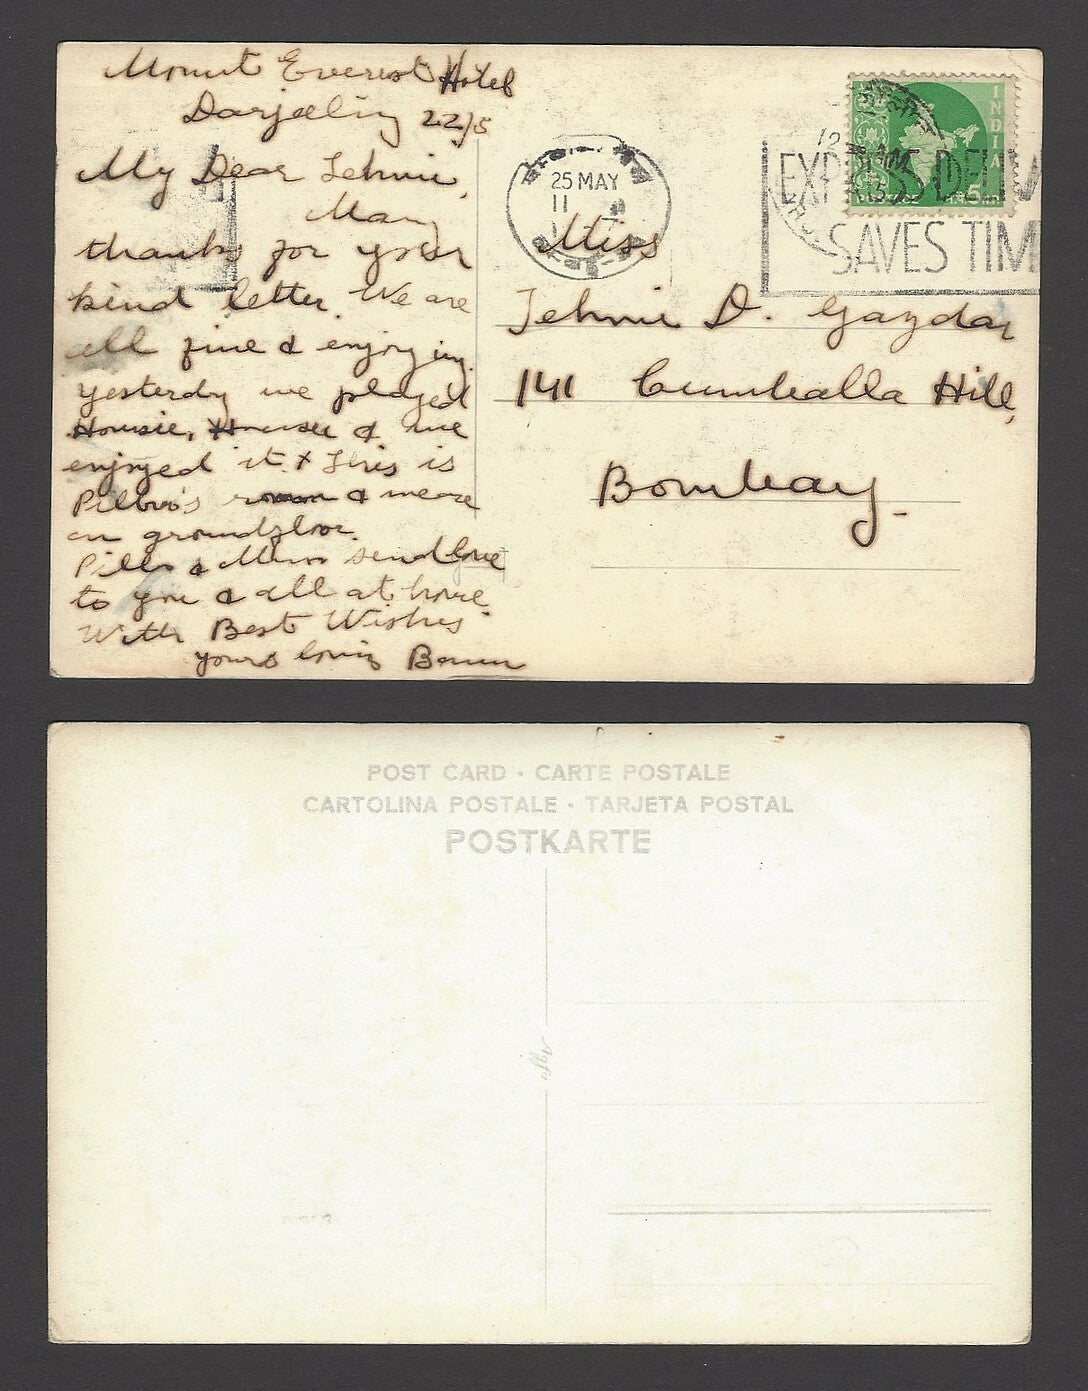 Mount Everest Hotel
Darjeeling 22/5
My Dear Tehmi,
Many
thanks for your
kind letter. We are
all fine & enjoying.
Yesterday we played
Housie, & we
enjoyed it. + This is
room & we are
on groundfloor.
Pilloo & send love
to you & all at home.
With Best Wishes
yours loving
INDIA
25 MAY
11
12 AM
EXPRESS DELIV
SAVES TIM
Miss
Tehmi D. Gazdar
141 Cumballa Hill,
Bombay.
POST CARD · CARTE POSTALE
CARTOLINA POSTALE · TARJETA POSTAL
POSTKARTE